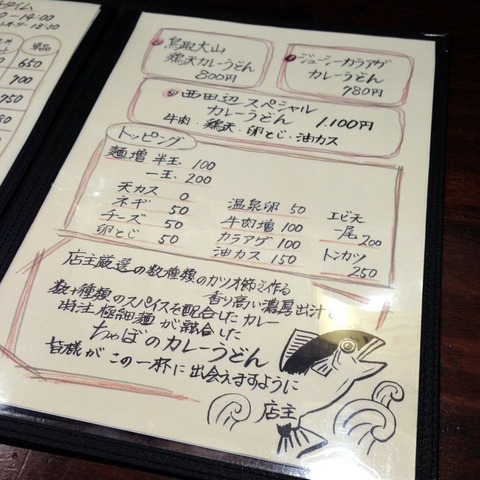 タイム
0-14:00
-13:30
単品
650
700
750
鳥取大山
鶏天カレーうどん
800円
ジューシーカラアゲ
カレーうどん
780円
西田辺スペシャル
カレーうどん 1,100円
牛肉・鶏天・卵とじ・油カス
トッピング
麺増 半玉 100
一玉 200
天カス 0
ネギ 50
チーズ 50
卵とじ 50
温泉卵 50
牛肉増 100
カラアゲ 100
油カス 150
エビ天
一尾 200
トンカツ
250
店主厳選の数種類のカツオ節で作る
香り高い濃厚出汁と
数十種類のスパイスを配合したカレー
特注極細麺が融合した
ちゃぼのカレーうどん
皆様がこの一杯に出会えますように
店主